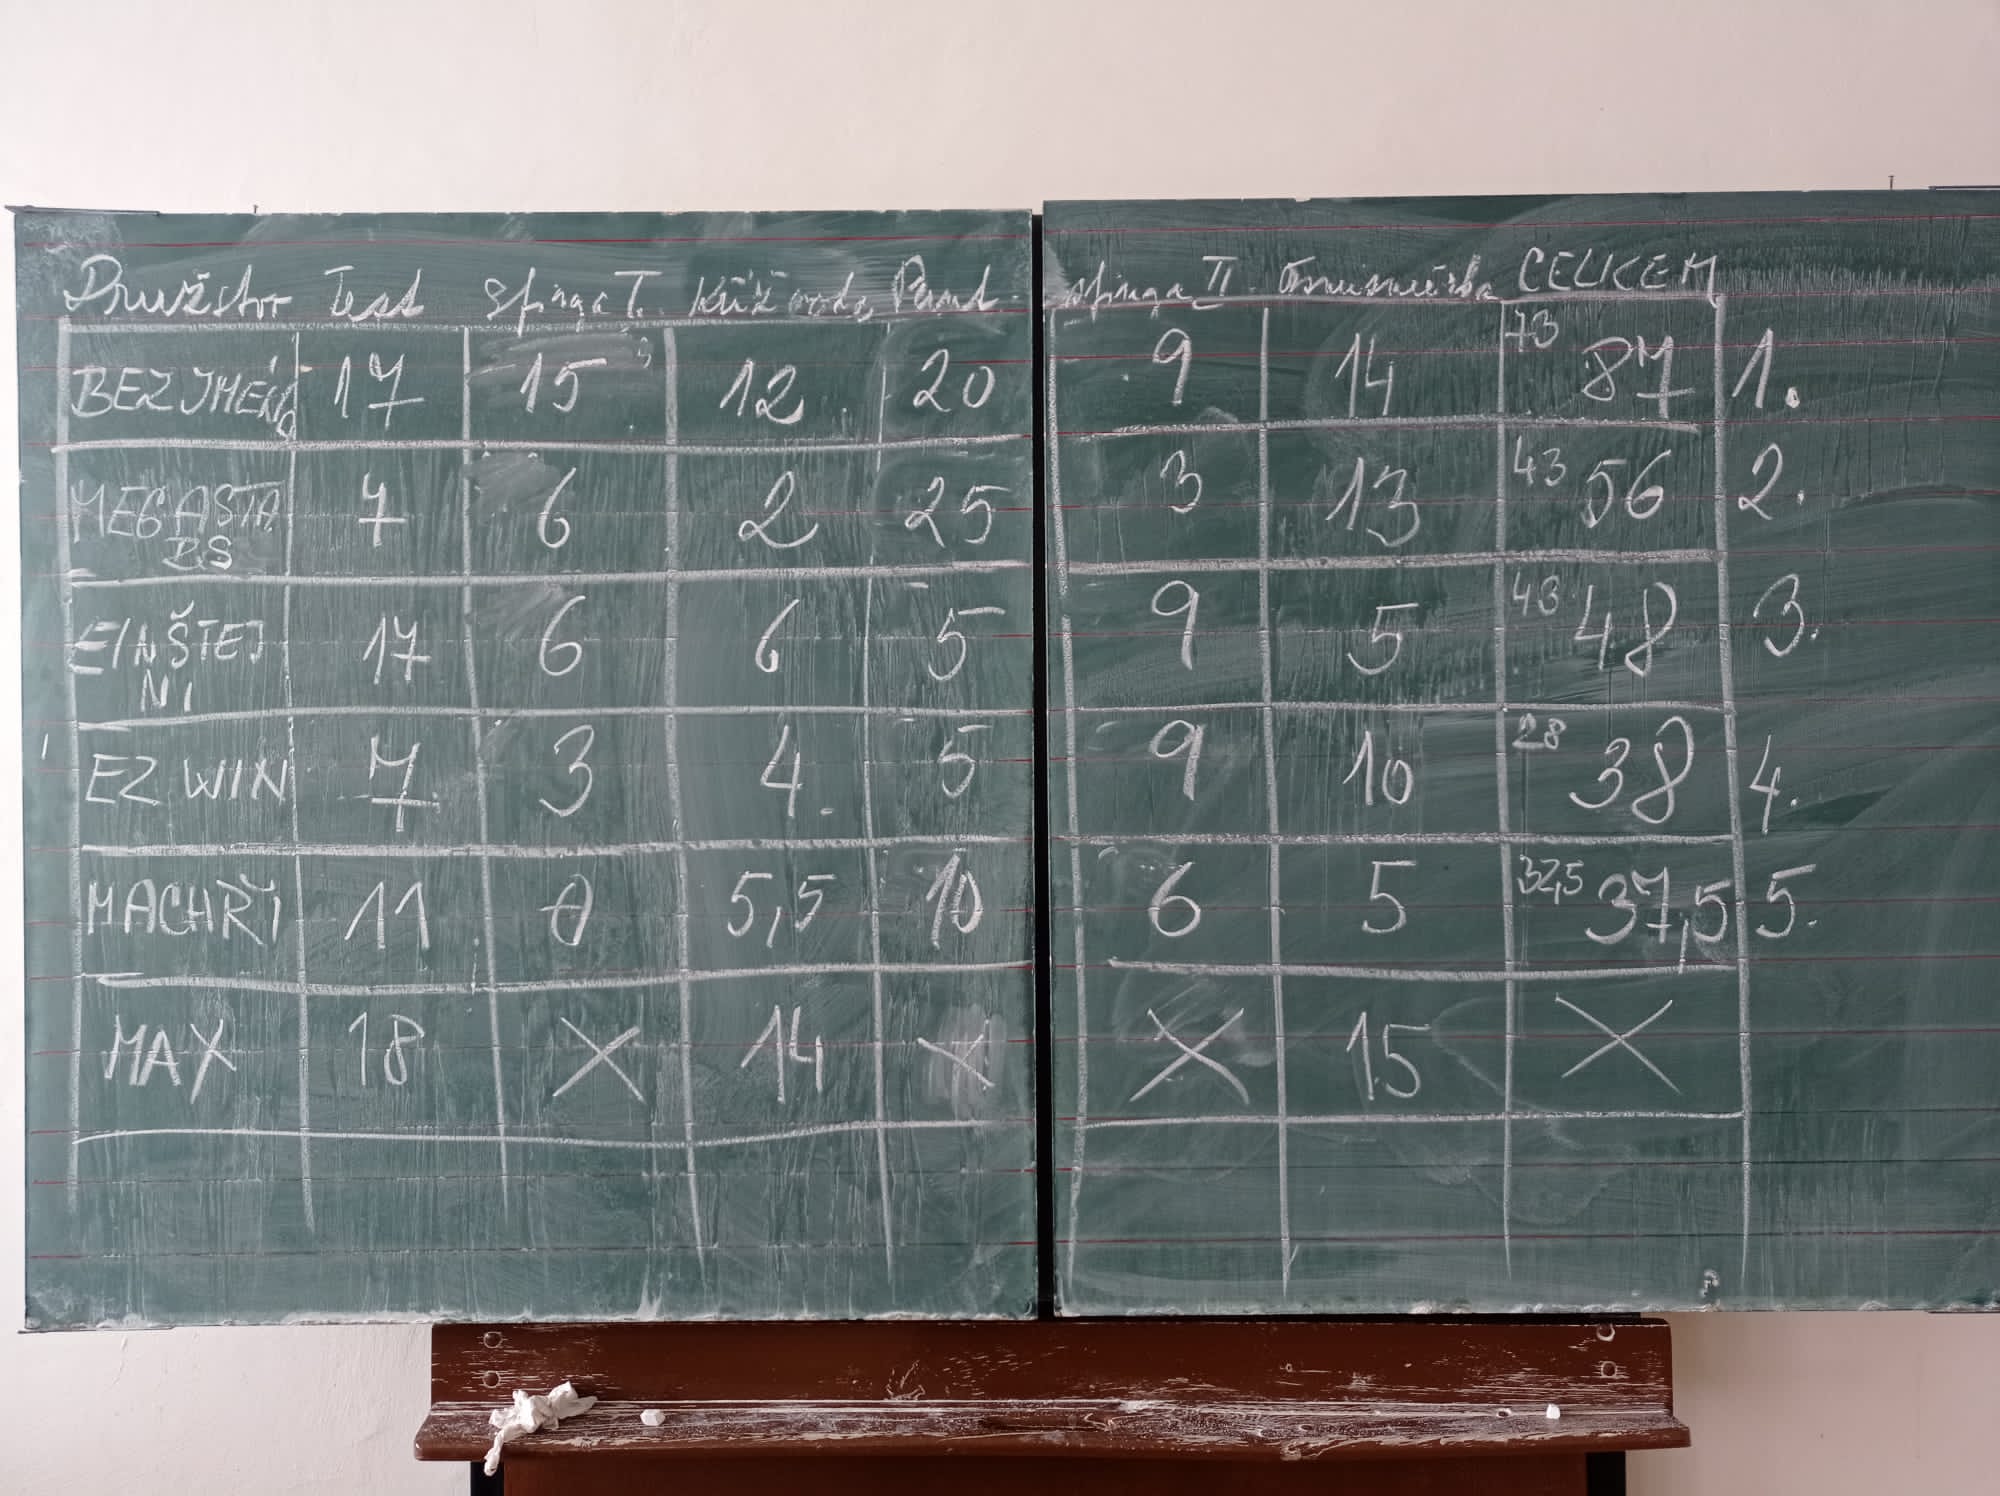 Družstvo Test Sfinga I. Kříž. voda Pant. sfinga II. Osmisměrka CELKEM
BEZ JMÉNA 17 15 12 20 9 14 73 87 1.
MEGASTA 7 6 2 25 3 13 43 56 2.
RS
EINŠTEJ 17 6 6 5 9 5 43 48 3.
NI
EZ WIN 7 3 4 5 9 10 28 38 4.
MACHŘI 11 0 5,5 10 6 5 32,5 37,5 5.
MAX 18 X 14 X X 15 X